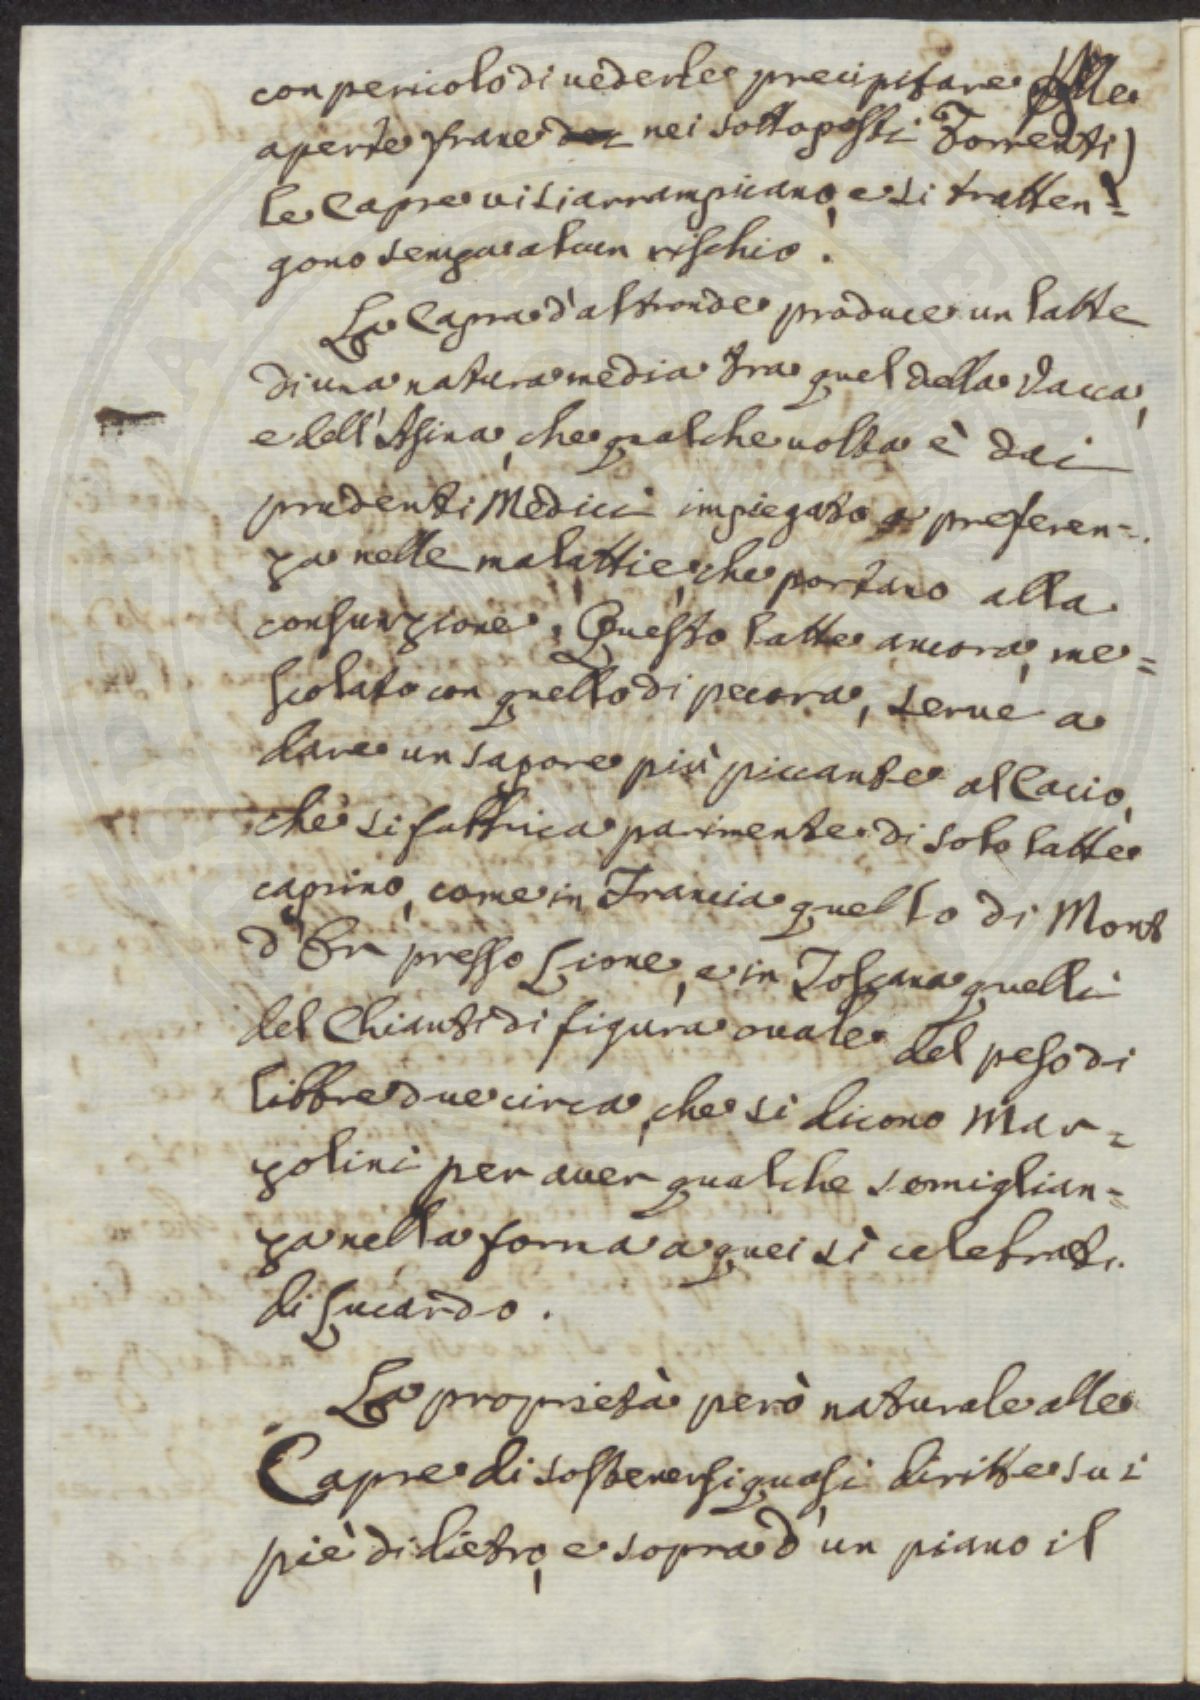 con pericolo di vederle precipitare dalle
aperte frane nei sottoposti Torrenti)
le Capre vi si arrampicano, e si tratten=
gono senza alcun rischio.
La Capra d'altronde produce un latte
di una natura media tra quel della Vacca,
e dell'Asina, che qualche volta è dai
prudenti Medici impiegato a preferen=
za nelle malattie, che portano alla
consunzione. Questo latte ancora, me=
scolato con quello di pecora, serve a
dare un sapore più piccante al Cacio,
che si fabbrica parimente di solo latte
caprino, come in Francia quello di Mont
d'Or presso Lione, e in Toscana quelli
del Chianti di figura ovale del peso di
libbre due circa, che si dicono Mar=
zolini per aver qualche somiglian=
za nella forma a quei sì celebrati
di Lucardo.
La proprietà però naturale alle
Capre di sostenersi quasi diritte sui
piè di dietro, e sopra d'un piano il